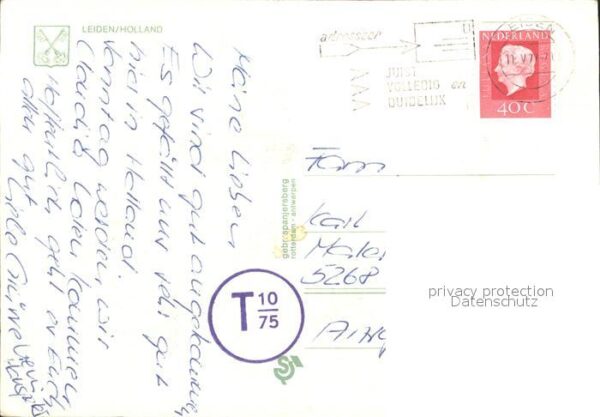 LEIDEN/HOLLAND
Meine Lieben
Wir sind gut angekommen
Es gefällt uns sehr gut
hier in Holland.
Sonntag werden wir
Claudia holen kommen
Hoffentlich geht es Euch
allen gut
Liebe Grüsse
adresseer
JUIST
VOLLEDIG en
DUIDELIJK
NEDERLAND
40 C
Fam
Karl
5268
T 10/75
gebr. spanjersberg
rotterdam - antwerpen
privacy protection
Datenschutz